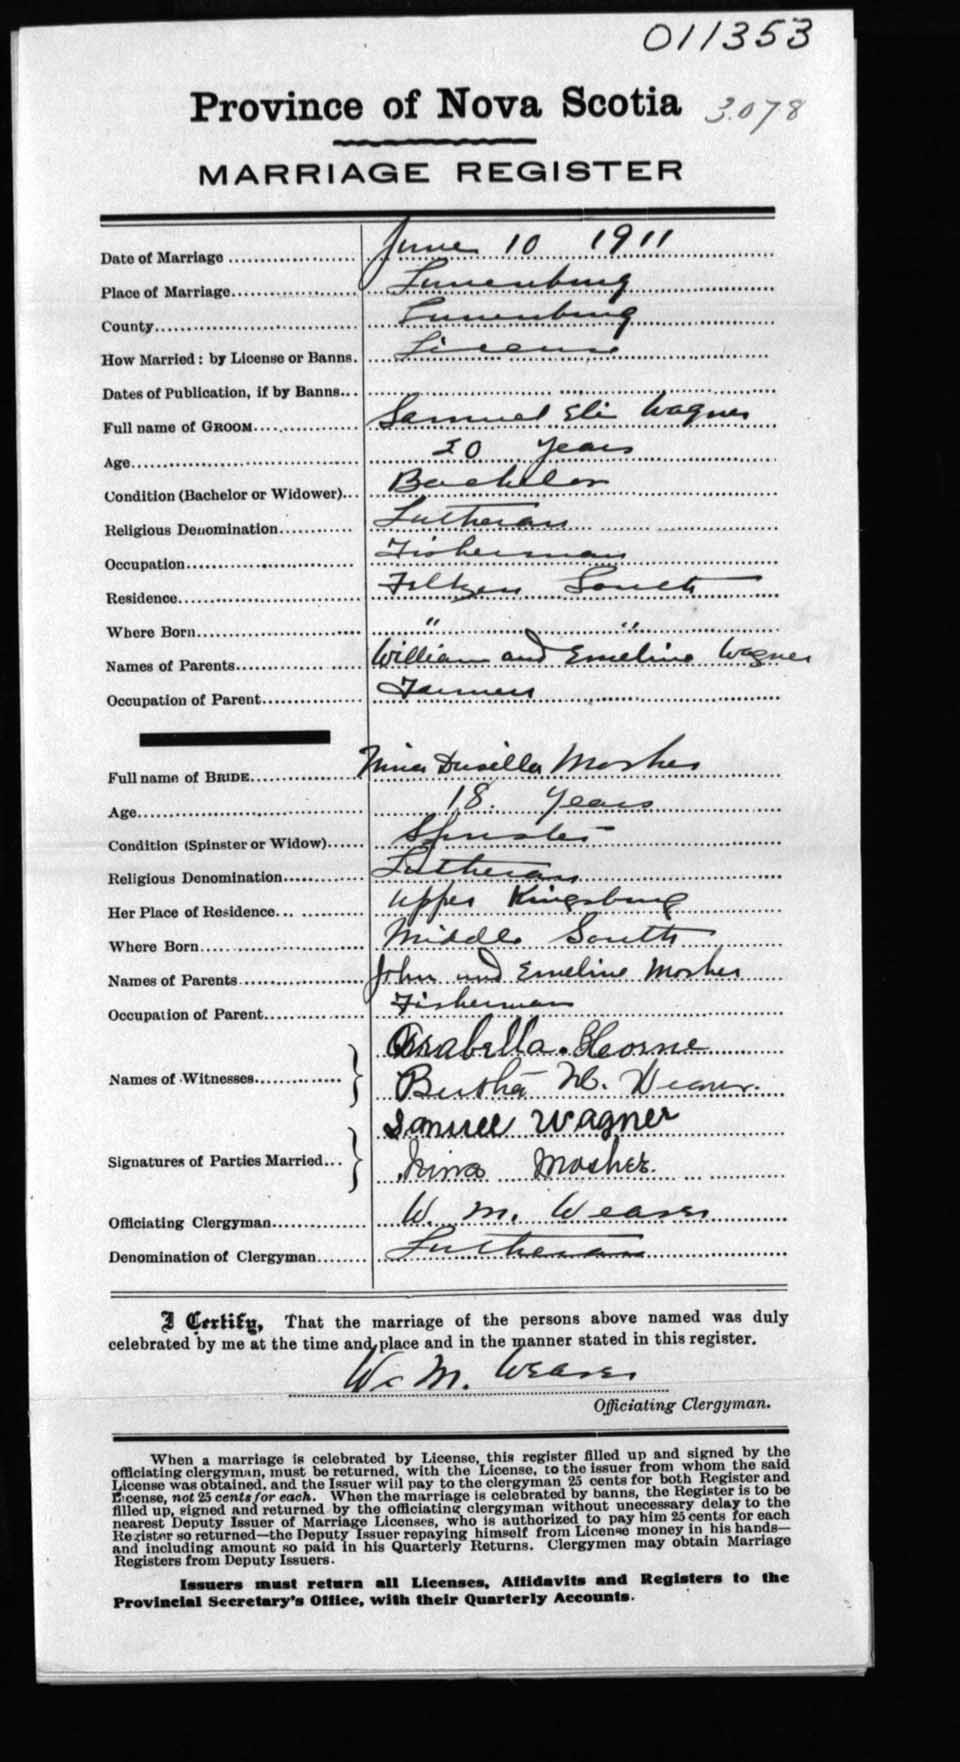 011353
Province of Nova Scotia 3078
MARRIAGE REGISTER
Date of Marriage June 10 1911
Place of Marriage Lunenburg
County Lunenburg
How Married: by License or Banns. License
Dates of Publication, if by Banns
Full name of GROOM Samuel Eli Wagner
Age 20 years
Condition (Bachelor or Widower) Bachelor
Religious Denomination Lutheran
Occupation Fisherman
Residence Feltzen South
Where Born " "
Names of Parents William and Emeline Wagner
Occupation of Parent Farmer
Full name of BRIDE Nina Drusilla Mosher
Age 18. years
Condition (Spinster or Widow) Spinster
Religious Denomination Lutheran
Her Place of Residence Upper Kingsburg
Where Born Middle South
Names of Parents John and Emeline Mosher
Occupation of Parent Fisherman
Names of Witnesses
Bertha M.
Samuel Wagner
Signatures of Parties Married
Nina Mosher.
Officiating Clergyman W. M. Weaver
Denomination of Clergyman Lutheran
I Certify, That the marriage of the persons above named was duly
celebrated by me at the time and place and in the manner stated in this register.
W. M. Weaver
Officiating Clergyman.
When a marriage is celebrated by License, this register filled up and signed by the
officiating clergyman, must be returned, with the License, to the issuer from whom the said
License was obtained, and the Issuer will pay to the clergyman 25 cents for both Register and
License, not 25 cents for each. When the marriage is celebrated by banns, the Register is to be
filled up, signed and returned by the officiating clergyman without unnecessary delay to the
nearest Deputy Issuer of Marriage Licenses, who is authorized to pay him 25 cents for each
Register so returned—the Deputy Issuer repaying himself from License money in his hands—
and including amount so paid in his Quarterly Returns. Clergymen may obtain Marriage
Registers from Deputy Issuers.
Issuers must return all Licenses, Affidavits and Registers to the
Provincial Secretary's Office, with their Quarterly Accounts.